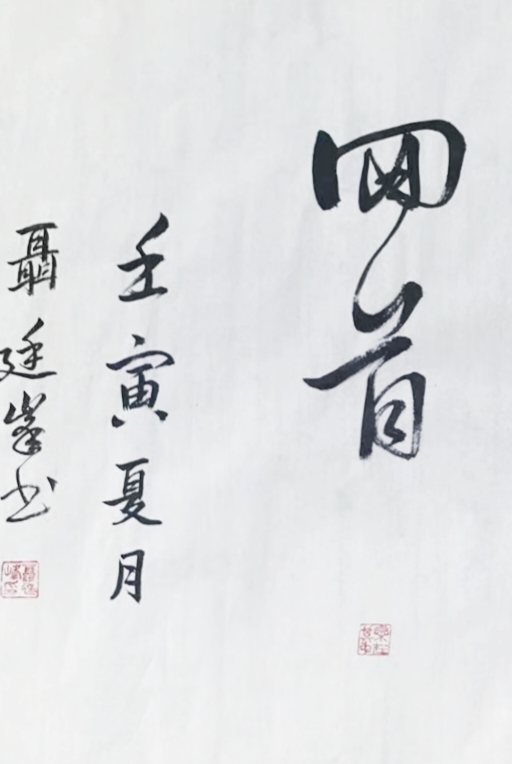 回首
壬寅夏月
聶廷峯书